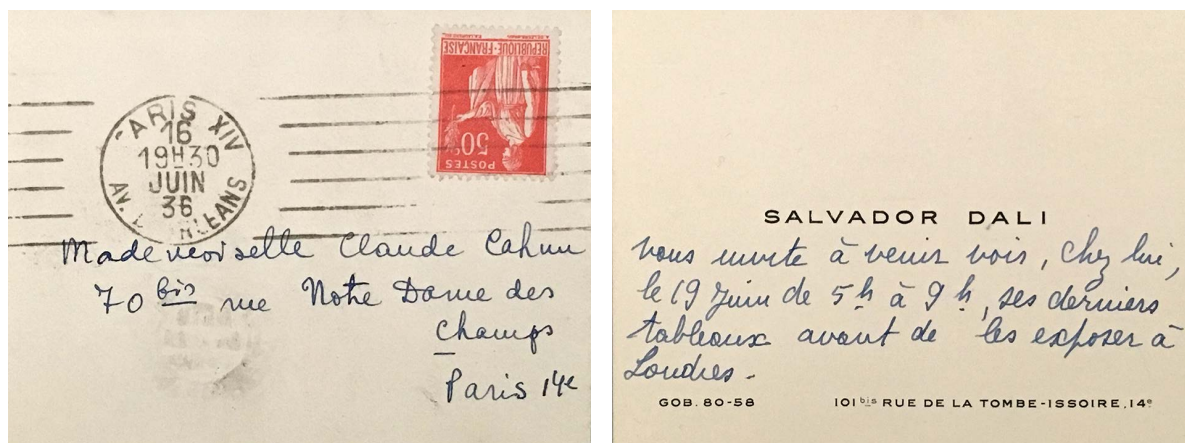 PARIS XIV
16
19H30
JUIN
36
AV. D'ORLEANS
REPUBLIQUE-FRANÇAISE
50c
POSTES
Mademoiselle Claude Cahun
70 bis rue Notre Dame des
Champs
Paris 14e
SALVADOR DALI
vous invite à venir voir, chez lui,
le 19 Juin de 5 h à 9 h, ses derniers
tableaux avant de les exposer à
Londres.
GOB. 80-58
101 bis RUE DE LA TOMBE-ISSOIRE, 14e